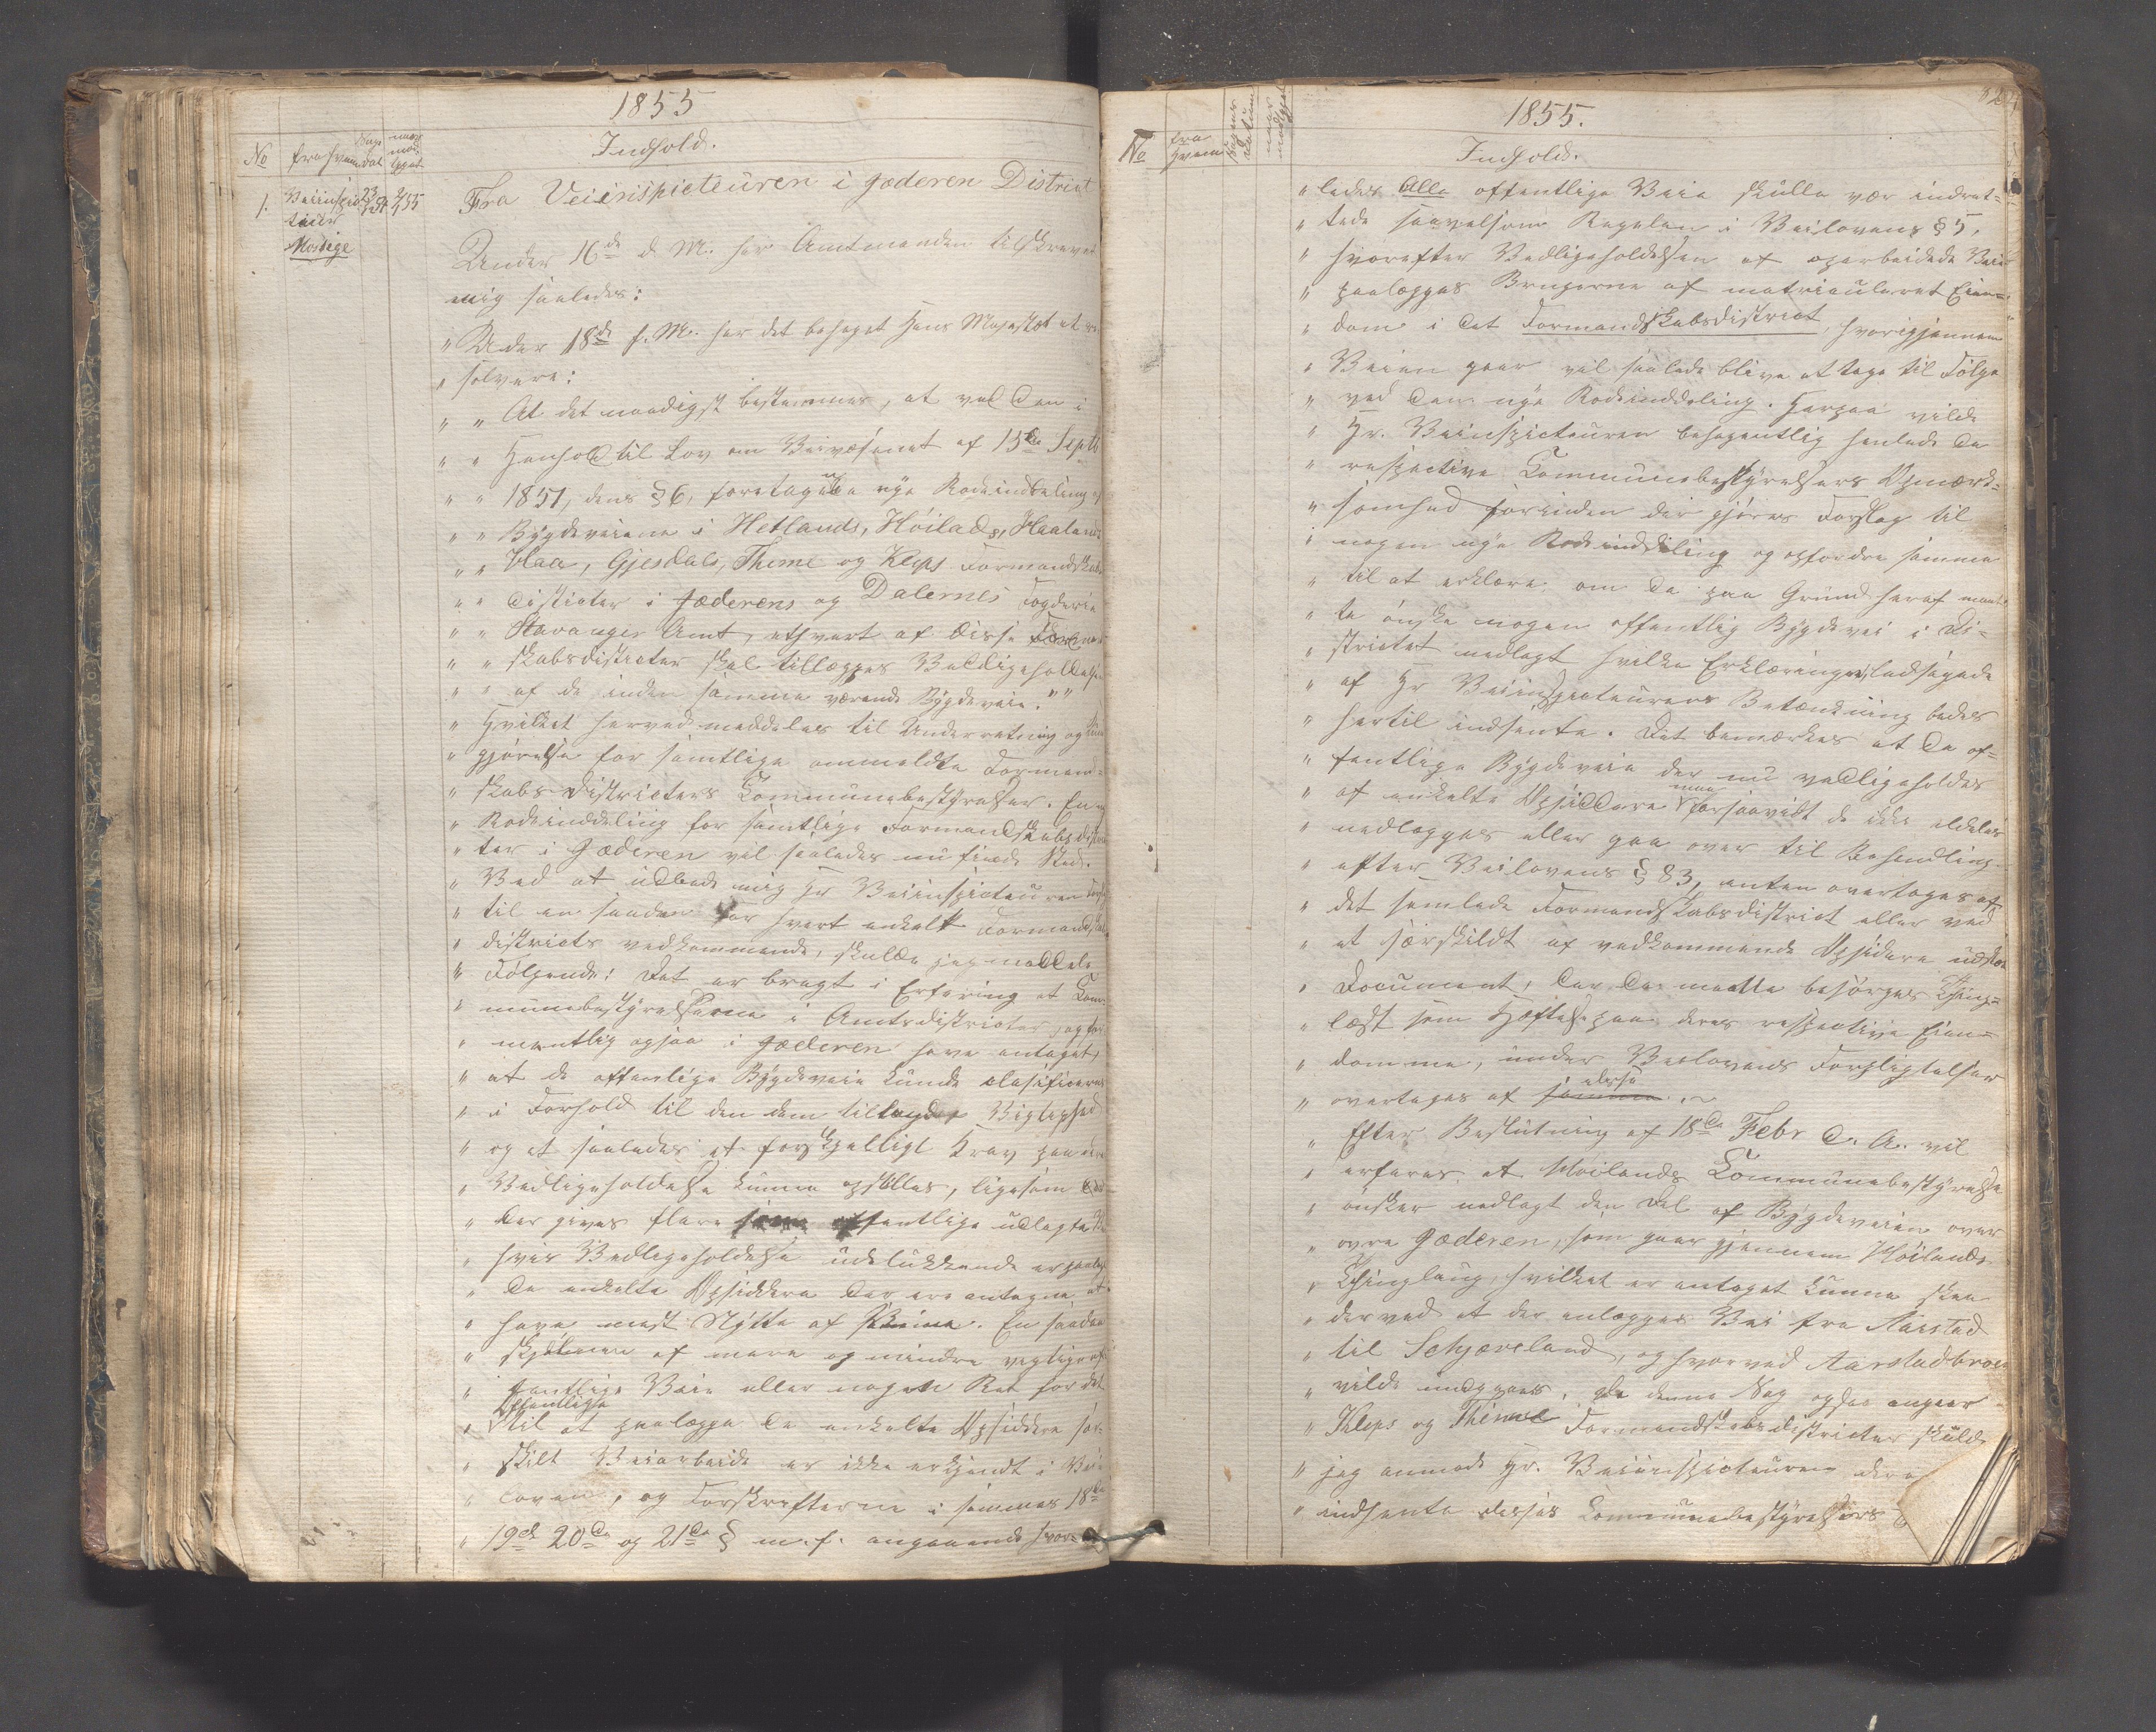 1855
No fra hvem Dat naar modtaget
Indhold.
1. Veiinspecteur Modige 23/12 54 2/1 55
Fra Veiinspecteuren i Jæderen District
Under 16de d. M. har Amtmanden tilskrevet
mig saaledes:
" Under 18de f. M. har det behaget Hans Majestæt at re
" solvere:
" " At det naadigst bestemmes, at ved den i
" " Henhold til Lov om Veivæsenet af 15de Septb
" " 1851, dens § 6, foretagende nye Rodeinddeling af
" " Bygdeveiene i Hetlands, Höilads, Haalands
" " Haa, Gjesdals, Thime og Kleps Formandskabs
" " districter i Jæderens og Dalernes Fogderie
" " Stavanger Amt, ethvert af disse Formand
" " skabsdistricter skal tillægges Vedligeholdelsen
" " af de inden samme værende Bygdeveie. " "
" Hvilket herved meddeles til Underretning og Kund
" gjørelse for samtlige anmeldte Formand-
" skabs Districters Communebestyrelser. En ny
" Rodeinddeling for samtlige Formandskabsdistric
" ter i Jæderen vil saaledes nu finde Sted.
" Ved at udbede mig Hr Veiinspecteuren Forslag
" til en saadan for hvert enkelt Formandskabs
" districts vedkommende, skulde jeg meddele
" Følgende: Det er bragt i Erfaring at Com-
" munebestyrelserne i Amtsdistrictet, og for
" mentlig ogsaa i Jæderen have antaget,
" at de offentlige Bygdeveie kunde classificeres
" i Forhold til den dem tillagde Vigtighed
" og at saaledes et forskjelligt Krav paa deres
" Vedligeholdelse kunne opstilles, ligesom at
" der gives flere som offentlige udlagte Veie
" hvis Vedligeholdelse udelukkende er paalagt
" de enkelte Opsiddere der ere antagne at
" have mest Nytte af samme. En saadan
" skjelnen af mere og mindre vigtige of
" fentlige Veie eller nogen Ret for det
Offentlige
" til at paalægge de enkelte Opsiddere sær-
" skilt Veiarbeide er ikke erkjendt i Vei
" loven, og Forskrifterne i sammes 18de
" 19de 20de og 21de § m. f. angaaende hvor-
1855.
No fra hvem Sagens datum naar modtaget
Indhold.
" ledes Alle offentlige Veie skulle vær indret-
" tede saavelsom Regelen i Veilovens § 5,
" hvorefter Vedligeholdelsen af oparbeidede Veie
" paalægges Brugerne af matriculeret Eien-
" dom i det Formandskabsdistrict, hvorigjennem
" Veien gaar vil saalede blive at tage til Følge
" ved den nye Rodeinddeling. Herpaa vilde
" Hr. Veiinspecteuren behagentlig henlede de
" respective Communebestyrelsers Opmærk-
" somhed forinden der gjøres Forslag til
" nogen nye Rodeinddeling og opfordre samme
" til at erklære om de paa Grund heraf maat-
" te ønske nogen offentlig Bygdevei i Di-
" strictet nedlagt hvilke Erklæringer, ledsagede
" af Hr Veiinspecteurens Betænkning bedes
" hertil indsente. Det bemærkes at de of-
" fentlige Bygdeveie der nu vedligeholdes
" af enkelte Opsiddere maa forsaavidt de ikke aldeles
" nedlægges eller gaa over til Behandling
" efter Veilovens § 83, enten overtages af
" det samlede Formandskabsdistrict eller ved
" et særskildt af vedkommende Opsidere udstedt
" Document, der da maatte besørges Thing-
" læst som Hæftelse paa deres respective Eien-
" domme, under Veilovens Forpligtelser
" overtages af samme disse.
" Efter Beslutning af 18de Febr d. A. vil
" erfares at Høilands Communebestyrelse
" ønsker nedlagt den Del af Bygdeveien over
" øvre Jæderen, som gaar gjennem Höilands
" Thinglaug, hvilket er antaget kunne skee
" derved at der anlægges Vei fra Aarstad
" til Schjæveland, og hvorved Aarstadbroen
" vilde undgaaes, da denne Sag ogsaa angaar
" Kleps og Thime Formandskabsdistricter skulde
" jeg anmode Hr. Veiinspecteuren
" indsente disses Communebestyrelsers